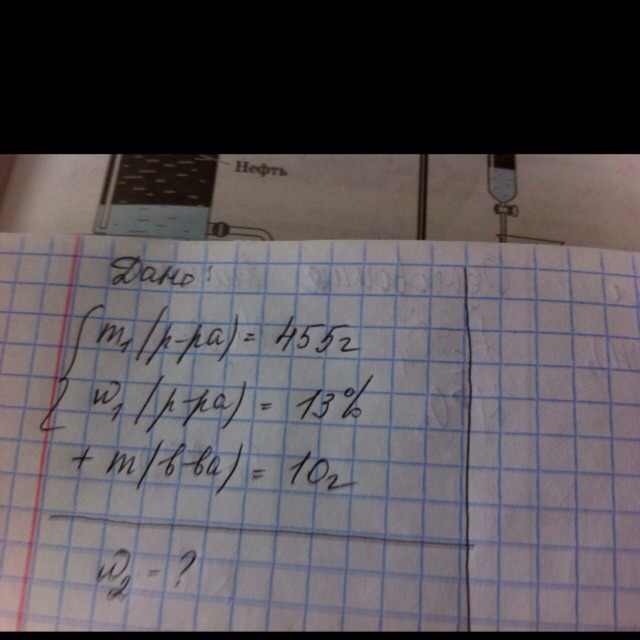 Нефть
Дано:
m₁(р-ра) = 455г
w₁(р-ра) = 13%
+ m(в-ва) = 10г
w₂ = ?